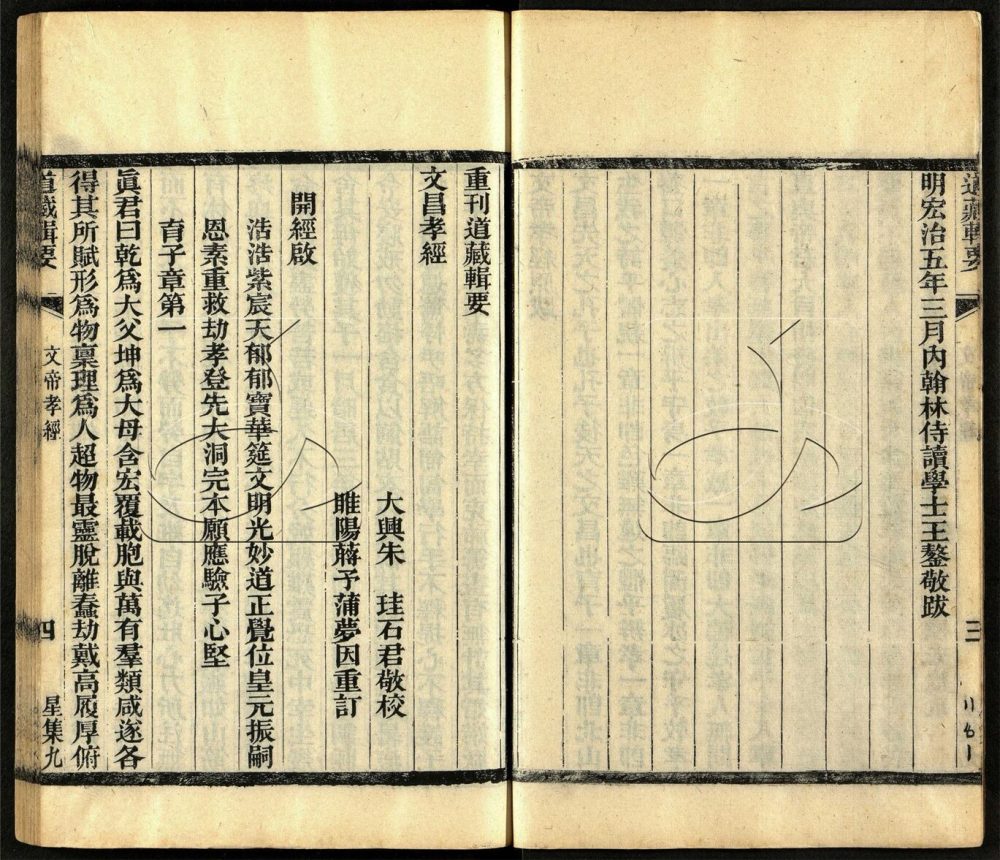 道藏輯要
三
明宏治五年三月內翰林侍讀學士王鏊敬跋
重刊道藏輯要
文昌孝經
大興朱 珪石君敬校
睢陽蔣予蒲夢因重訂
開經啟
浩浩紫宸天郁郁寶華筵文明光妙道正覺位皇元振嗣
恩素重救劫孝登先大洞完本願應驗子心堅
育子章第一
眞君曰乾爲大父坤爲大母含宏覆載胞與萬有羣類咸遂各
得其所賦形爲物稟理爲人超物最靈脫離蠢劫戴高履厚俯
道藏輯要
文帝孝經
四
星集九